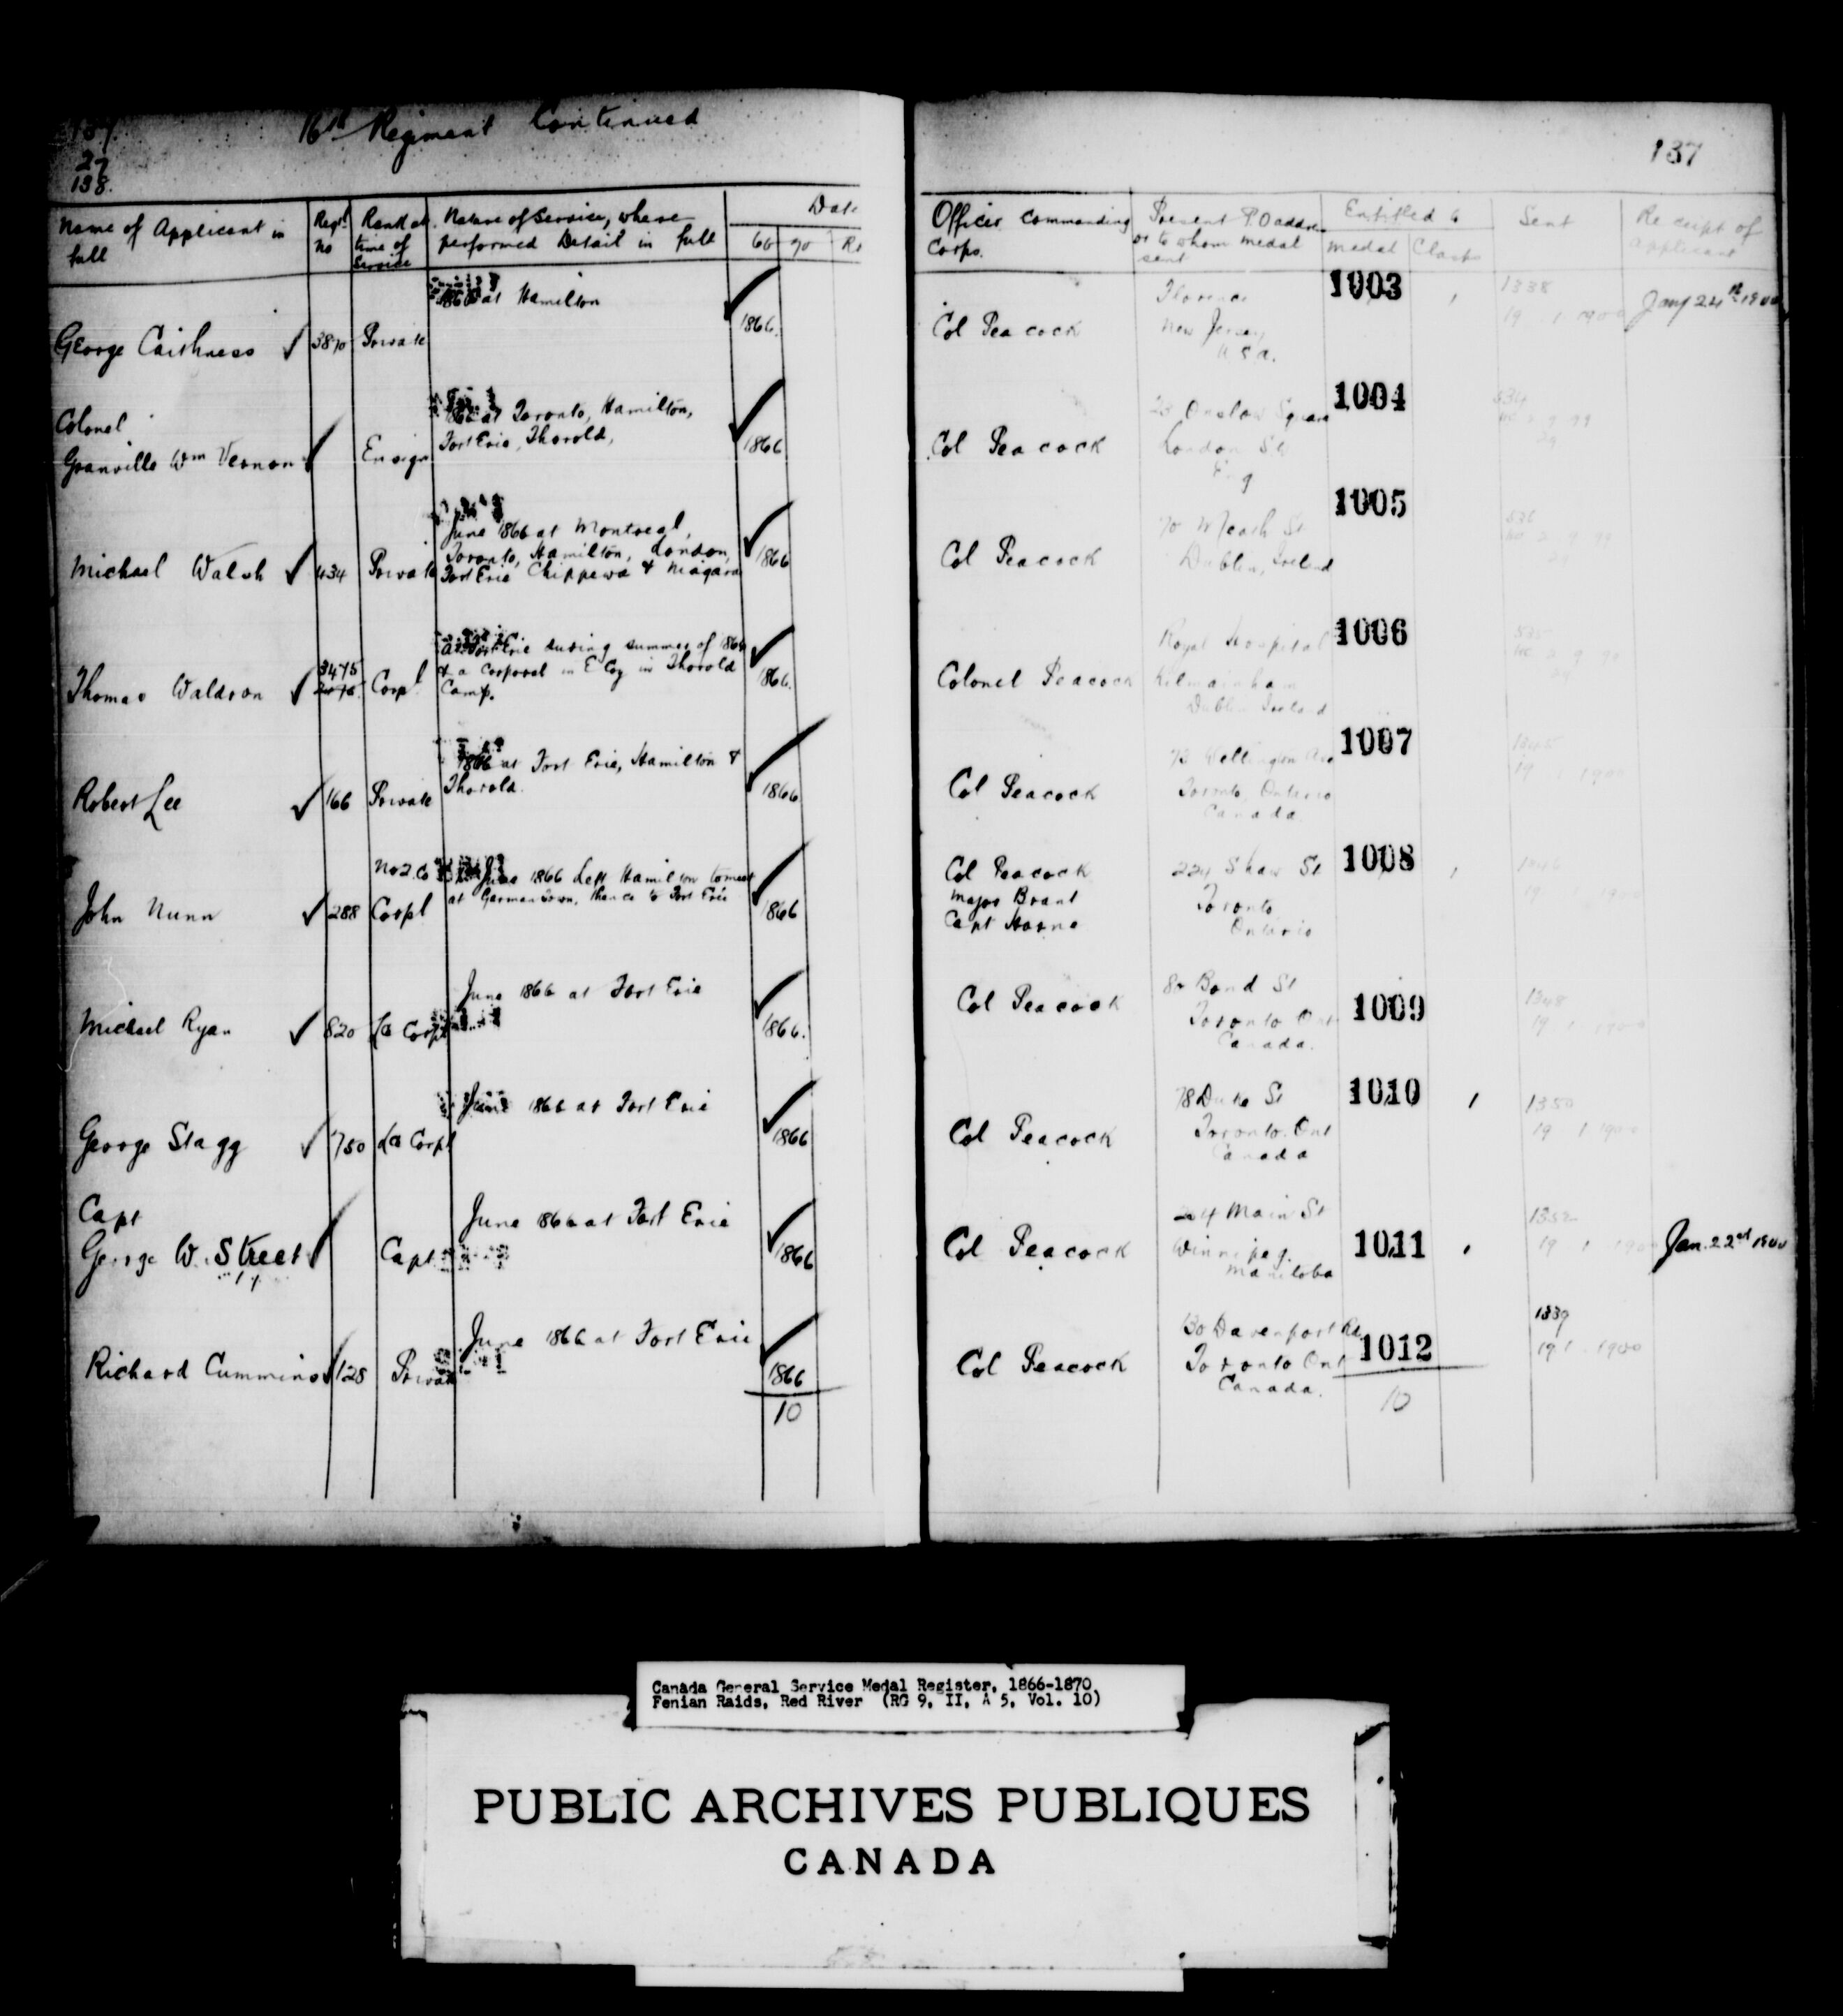 137
27
138.
16th Regiment Continued
137
Name of Applicant in full
Regtl No
Rank at time of Service
Nature of Service, where performed Detail in full
Date
66
70
Re
Officer Commanding Corps.
Present P.O address or to whom medal sent
Entitled to
Medal
Clasp
Sent
Receipt of applicant
George Caithness
3870
Private
1866 at Hamilton
1866.
Col Peacock
Florence
New Jersey,
U S a.
1003
1338
19 1 1900
Jany 24th 1900
Colonel
Granville Wm Vernon
Ensign
1866 at Toronto, Hamilton,
Fort Erie, Thorold,
1866
Col Peacock
Onslow Square
London
Eng
1004
534
Michael Walsh
434
Private
June 1866 at Montreal,
Toronto, Hamilton, London,
Fort Erie Chippewa & Niagara
1866
Col Peacock
70 Meath St
Dublin, Ireland
1005
536
Thomas Waldron
3475
Corpl
at Fort Erie during summer of 1866
& a Corporal in E Coy in Thorold
Camp.
1866.
Colonel Peacock
Royal Hospital
Kilmainham
Dublin Ireland
1006
535
Robert Lee
166
Private
1866 at Fort Erie, Hamilton &
Thorold.
1866
Col Peacock
Wellington Ave
Toronto, Ontario
Canada.
1007
1345
19 1 1900
John Nunn
288
No 2. Co
Corpl
June 1866 Left Hamilton
at Germantown, thence to Fort Erie
1866
Col Peacock
Major Brant
Capt Horne
224 Shaw St
Toronto
Ontario
1008
1346
19 1 1900
Michael Ryan
820
La Corpl
June 1866 at Fort Erie
1866.
Col Peacock
Bond St
Toronto Ont
Canada.
1009
1348
19 1 1900
George Stagg
750
La Corpl
June 1866 at Fort Erie
1866
Col Peacock
78 Duke St
Toronto. Ont
Canada
1010
1350
19 1 1900
Capt
George W. Street
Capt
June 1866 at Fort Erie
1866
Col Peacock
Main St
Winnipeg.
Manitoba
1011
1352
19 1 1900
Jan. 22nd 1900
Richard Cummins
128
Private
June 1866 at Fort Erie
1866
Col Peacock
130 Davenport Rd
Toronto Ont
Canada.
1012
1339
19 1 1900
10
10
Canada General Service Medal Register, 1866-1870
Fenian Raids, Red River (RG 9, II, A 5, Vol. 10)
PUBLIC ARCHIVES PUBLIQUES
CANADA